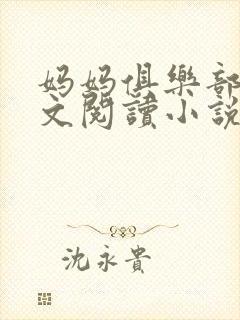 妈妈俱樂部
文閱讀小說
沈永貴